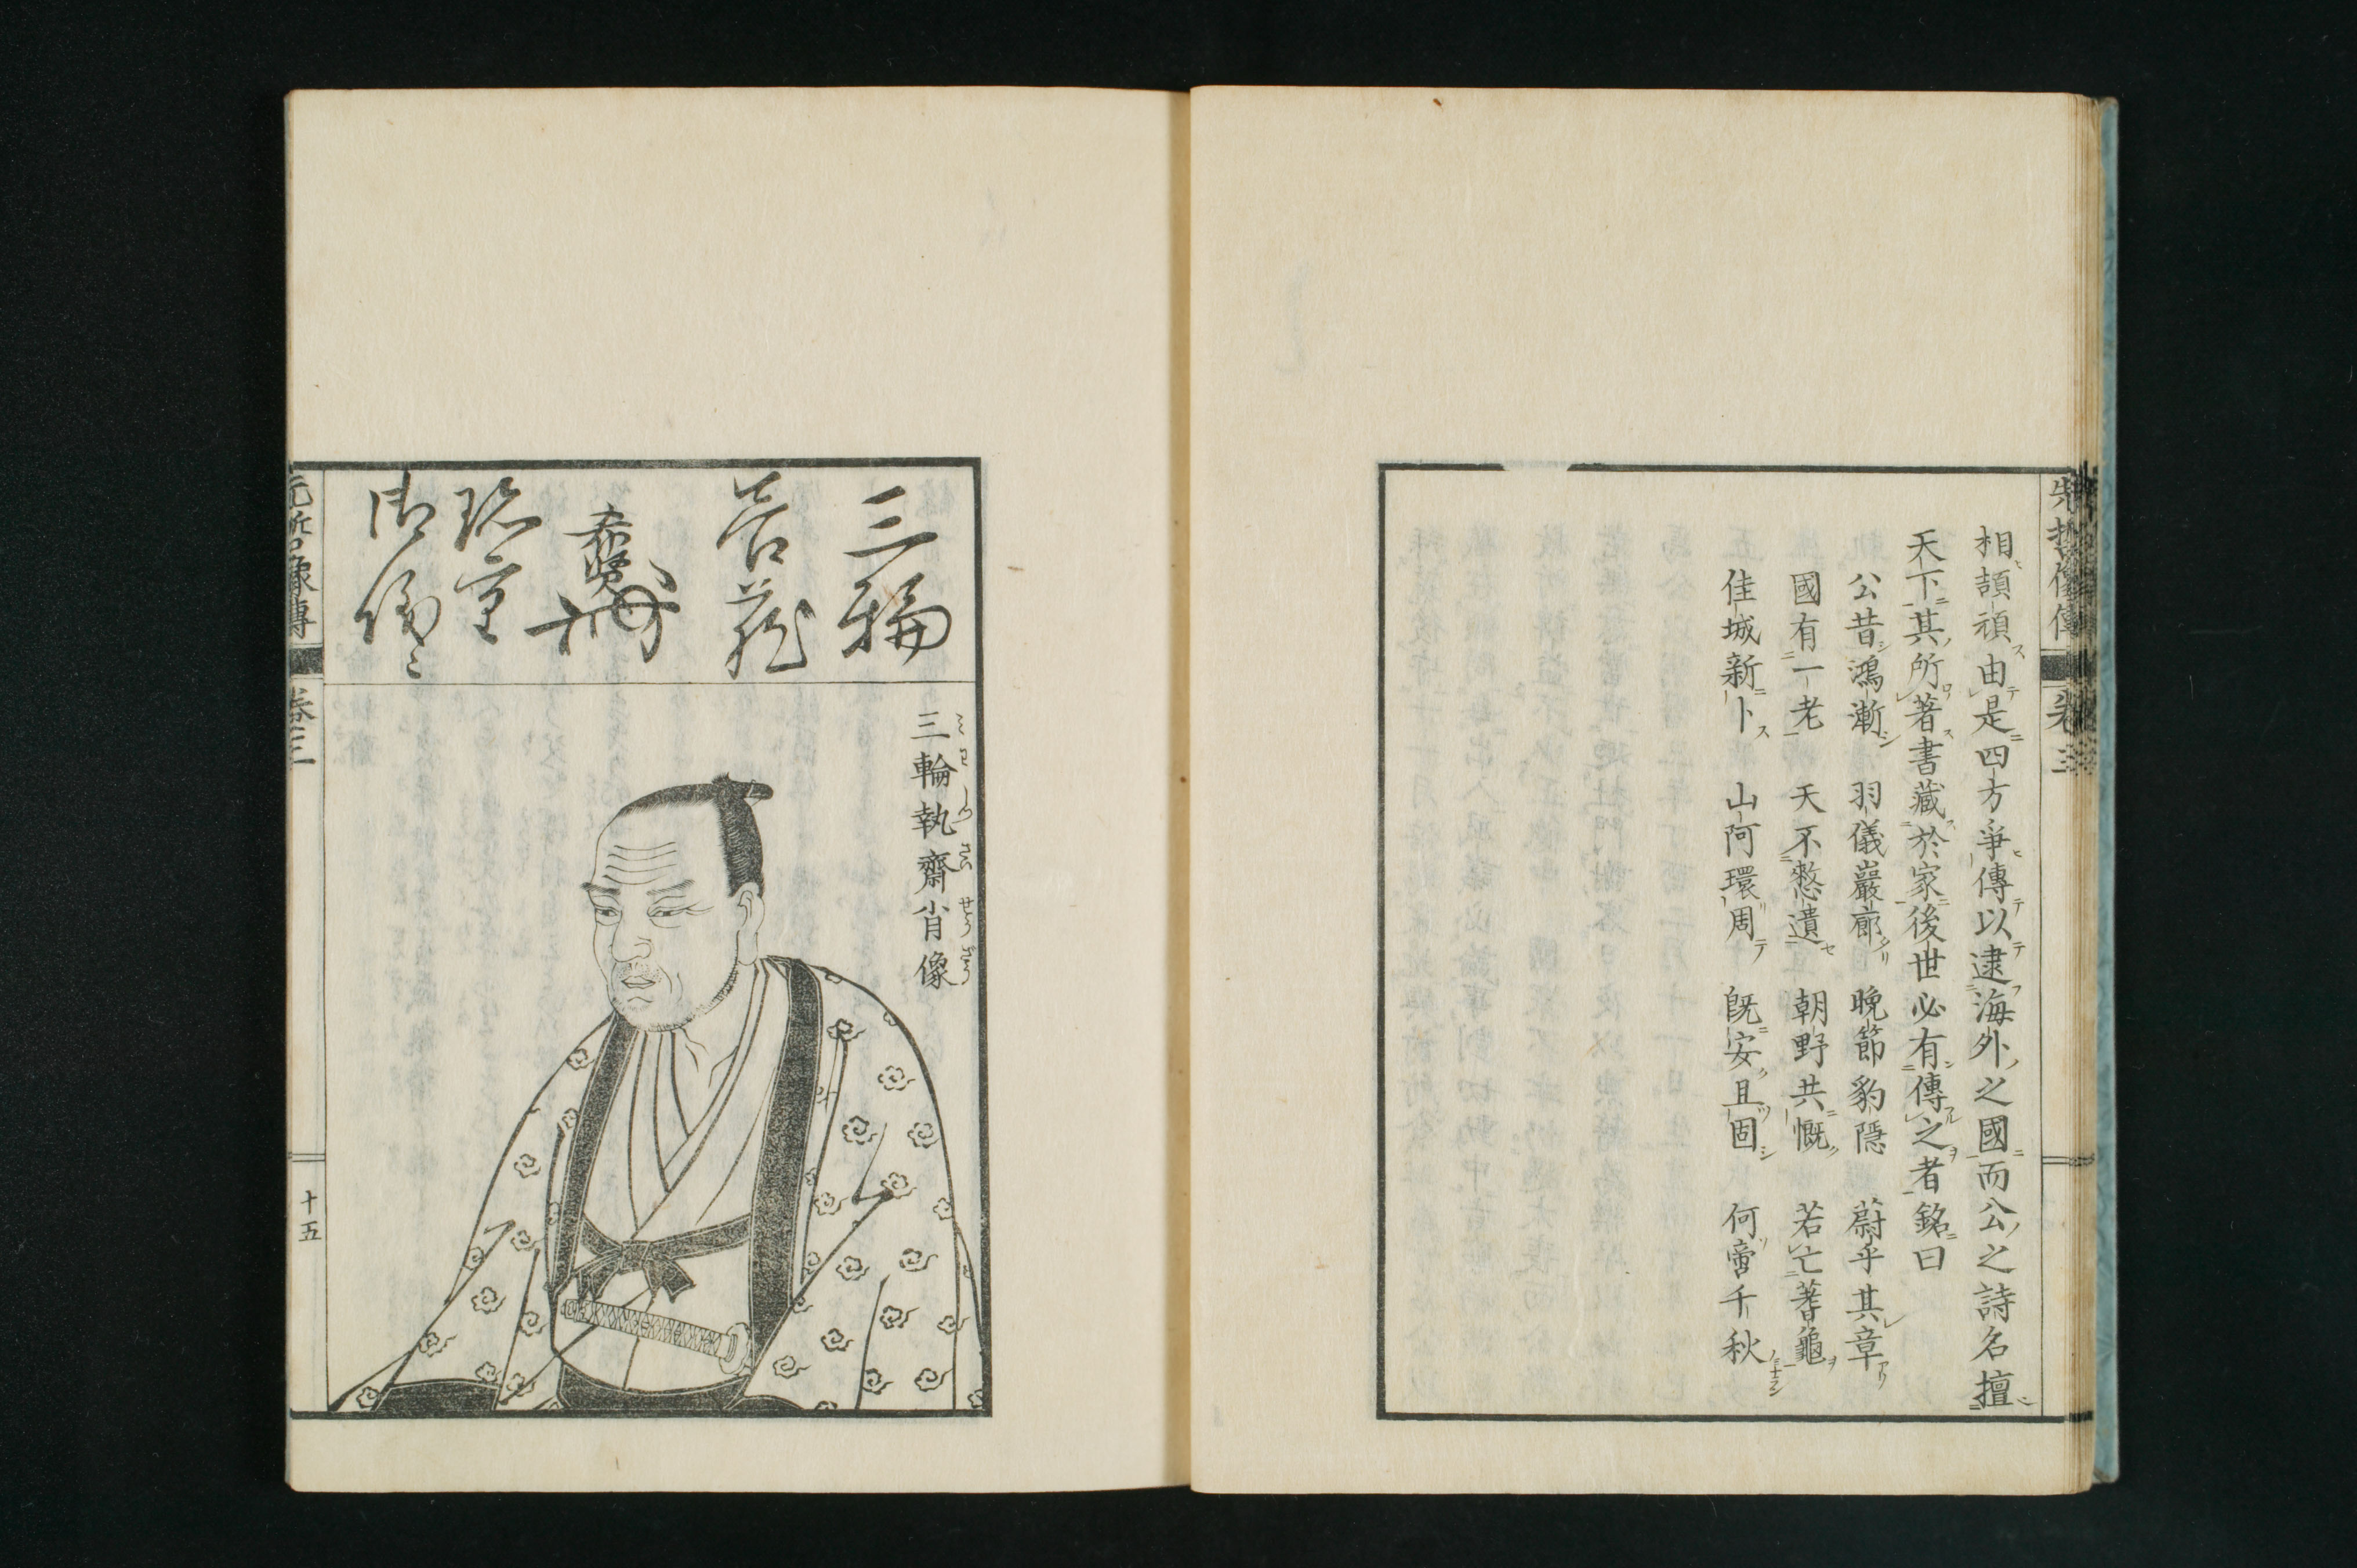 先哲像傳 卷三
相頡頏由是四方爭傳以逮海外之國而公之詩名擅
天下其所著書藏於家後世必有傳之者銘曰
公昔鴻漸 羽儀巖廊 晩節豹隱 蔚乎其章
國有一老 天不憗遺 朝野共慨 若亡蓍龜
佳城新卜 山阿環周 旣安且固 何啻千秋
三輪
善藏
希賢
三輪執齋肖像
みわしつさいせうざう
先哲像傳 卷三 十五